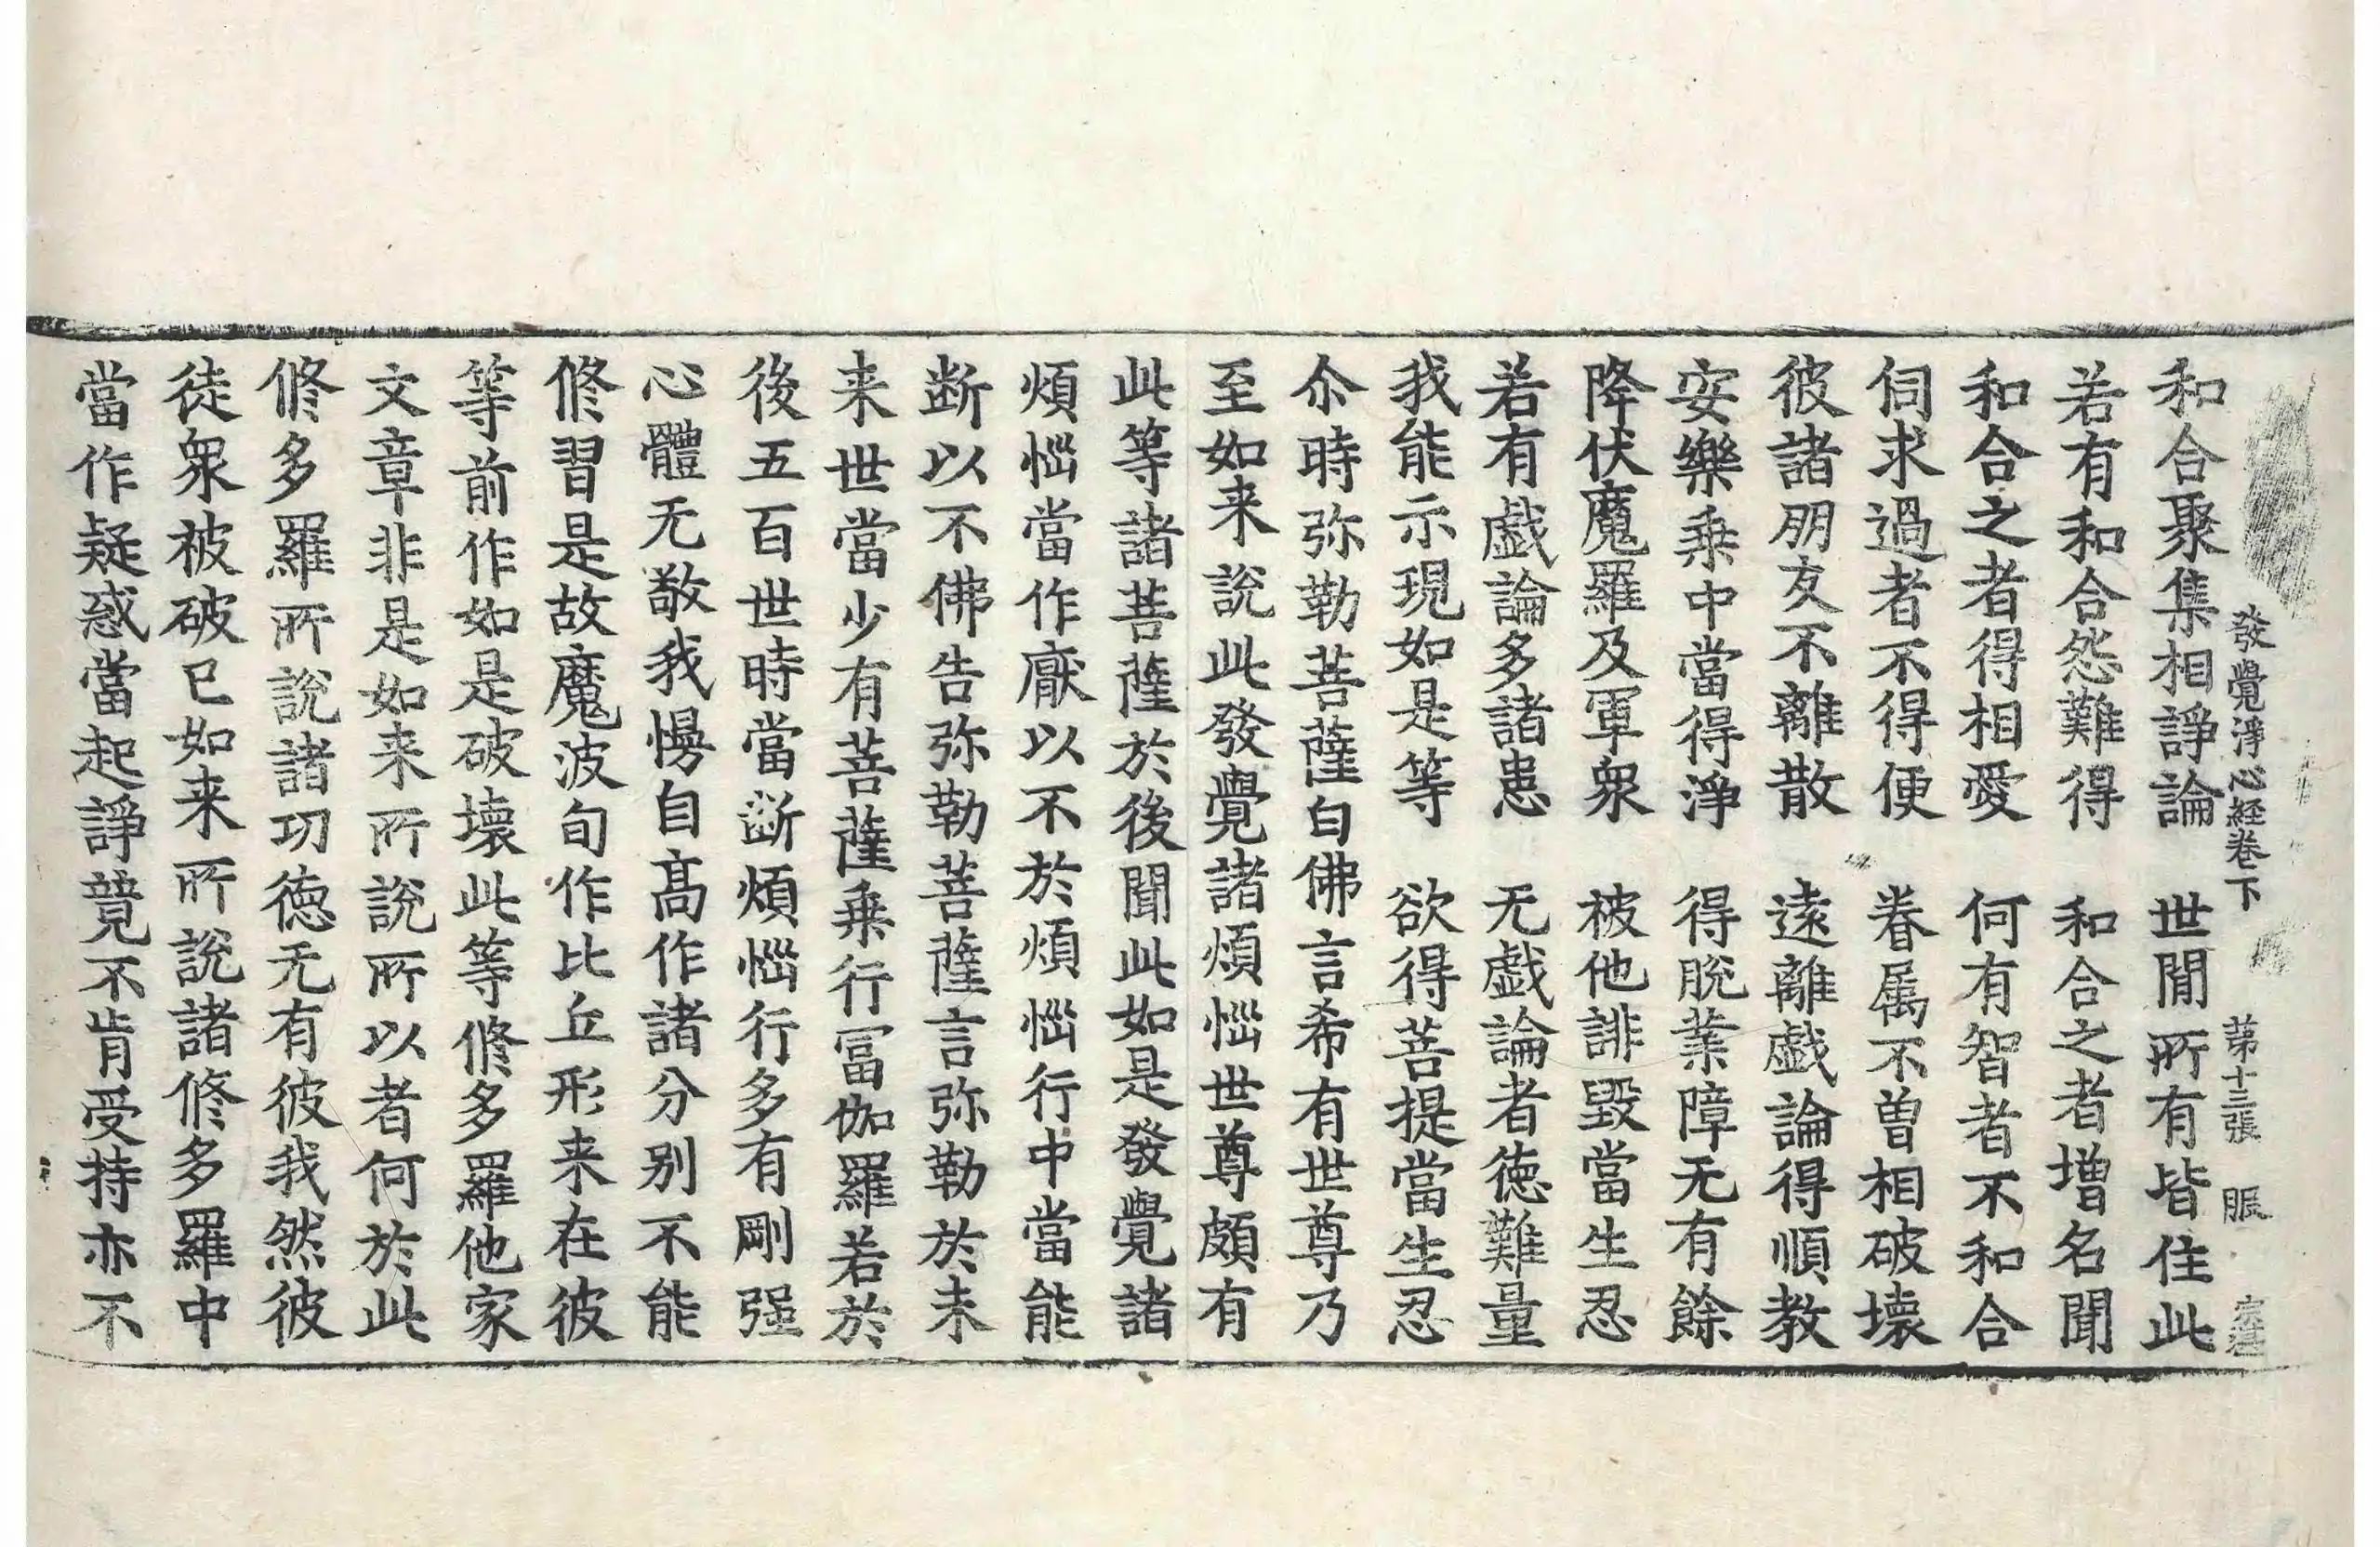 發覺淨心経卷下 苐十三張 賑
和合聚集相諍論 世閒所有皆住此
若有和合怨難得 和合之者増名聞
和合之者得相愛 何有智者不和合
伺求過者不得便 眷属不曽相破壊
彼諸朋友不離散 逺離戯論得順教
安樂乗中當得淨 得脫業障无有餘
降伏魔羅及軍衆 被他誹毀當生忍
若有戯論多諸患 无戯論者徳難量
我能示現如是等 欲得菩提當生忍
尒時弥勒菩薩白佛言希有世尊乃
至如来說此發覺諸煩惱世尊頗有
此等諸菩薩於後聞此如是發覺諸
煩惱當作厭以不於煩惱行中當能
断以不佛告弥勒菩薩言弥勒於未
来世當少有菩薩乗行冨伽羅若於
後五百世時當断煩惱行多有剛强
心體无敬我慢自髙作諸分别不能
修習是故魔波旬作比丘形来在彼
等前作如是破壊此等修多羅他家
文章非是如来所說所以者何於此
修多羅所說諸功徳无有彼我然彼
徒衆被破已如来所說諸修多羅中
當作疑惑當起諍競不肯受持亦不